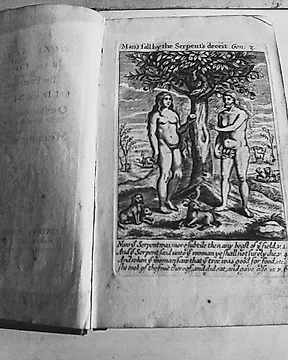 Man's fall by the Serpent's deceit Gen: 3.
Now yͤ Serpent was more subtile then any beast of yͤ field, v. 1.
And yͤ Serpent said unto yͤ woman ye shall not surely die, v. 4
And when yͤ woman saw that yͤ tree was good for food, etc.
she took of the fruit thereof, and did eat, and gave also v. 6